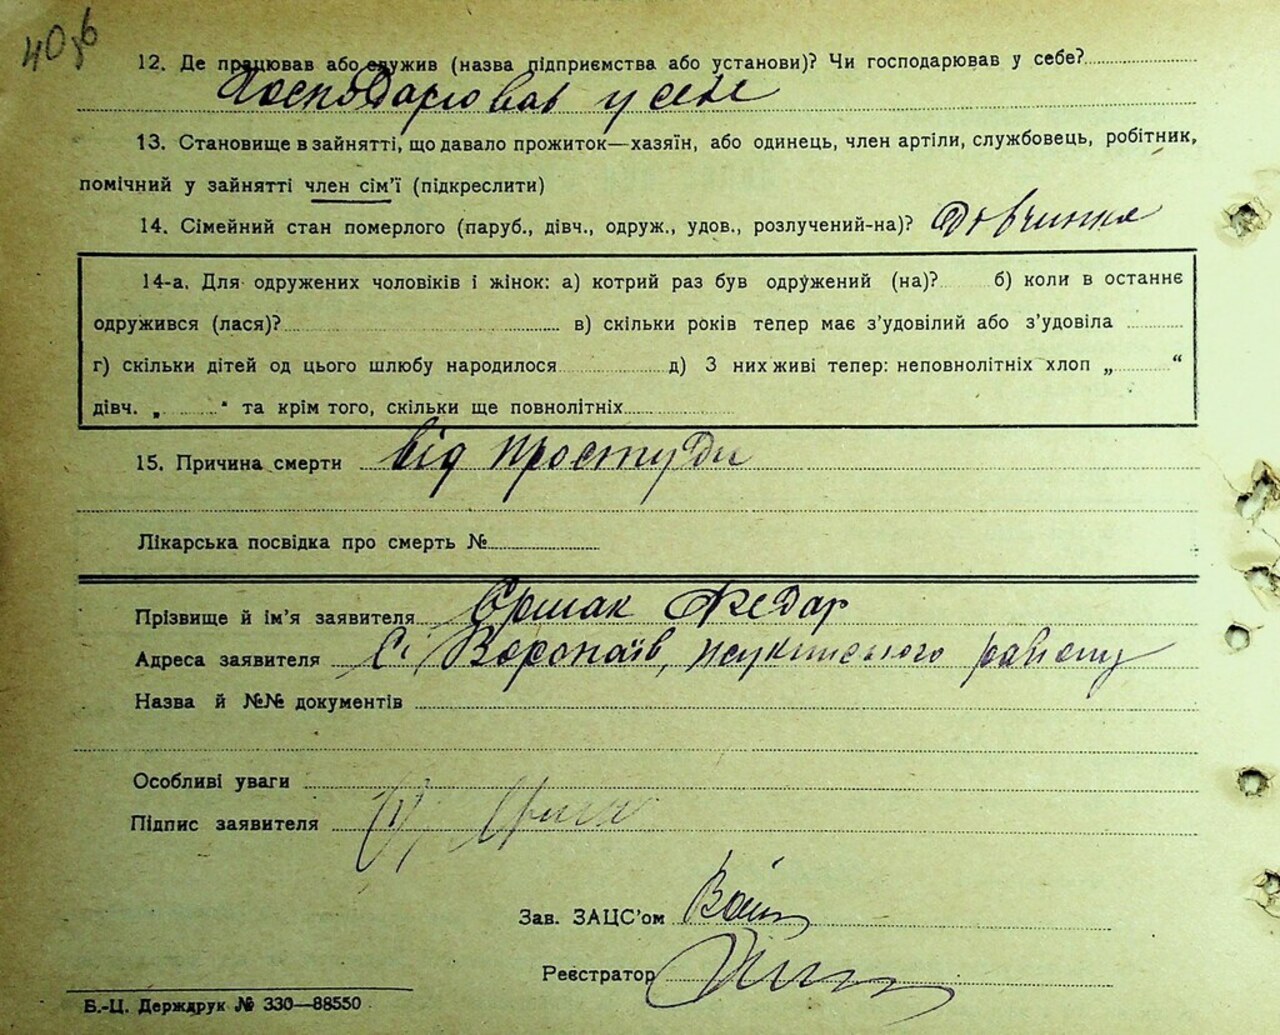 40
12. Де працював або служив (назва підприємства або установи)? Чи господарював у себе?
Господарював у себе
13. Становище в зайнятті, що давало прожиток—хазяїн, або одинець, член артілі, службовець, робітник,
помічний у зайнятті член сім'ї (підкреслити)
14. Сімейний стан померлого (паруб., дівч., одруж., удов., розлучений-на)? Дівчинка
14-а. Для одружених чоловіків і жінок: а) котрий раз був одружений (на)? б) коли в останнє
одружився (лася)? в) скільки років тепер має з'удовілий або з'удовіла
г) скільки дітей од цього шлюбу народилося д) З них живі тепер: неповнолітніх хлоп „ “
дівч. „ “ та крім того, скільки ще повнолітніх
15. Причина смерти від простуди
Лікарська посвідка про смерть №
Прізвище й ім'я заявителя Єрмак Федар
Адреса заявителя с. Воропаїв, району
Назва й №№ документів
Особливі уваги
Підпис заявителя
Зав. ЗАЦС'ом
Реєстратор
Б.-Ц. Держдрук № 330—88550